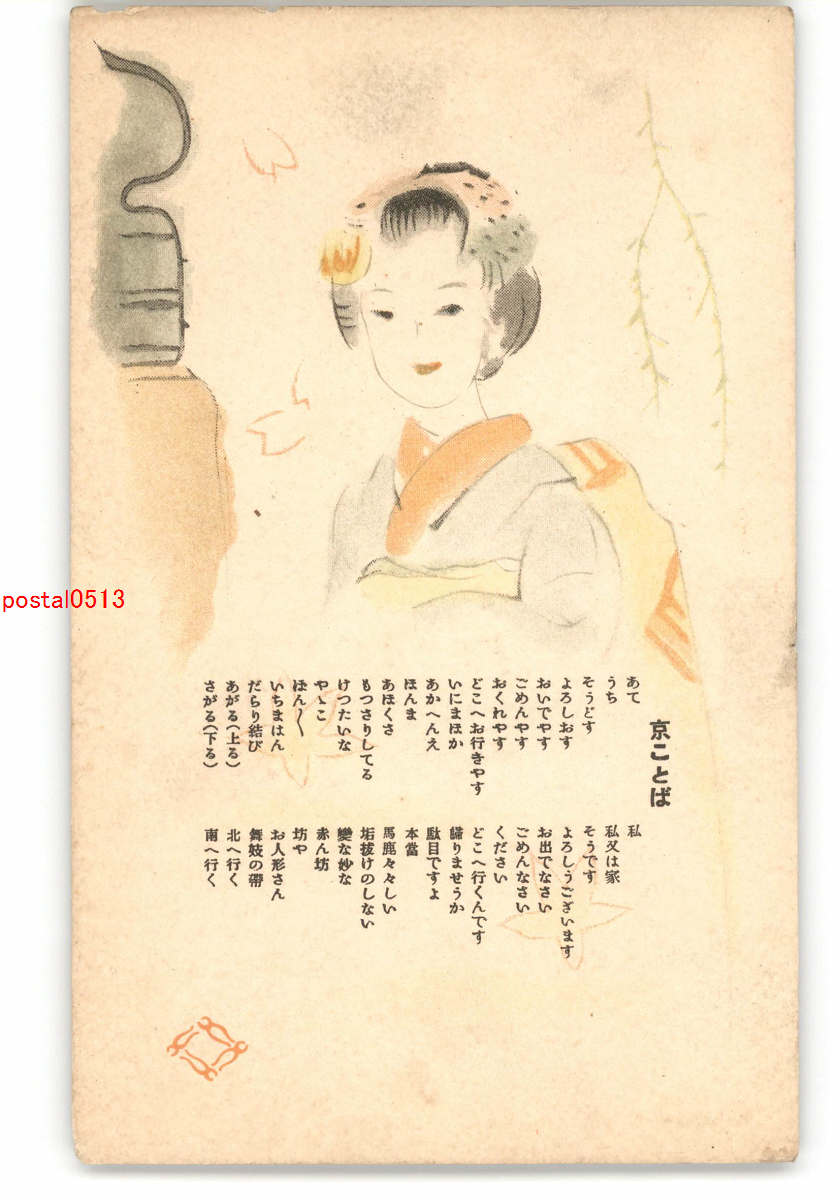 京ことば
あて 私
うち 私又は家
そうどす そうです
よろしおす よろしうございます
おいでやす お出でなさい
ごめんやす ごめんなさい
おくれやす ください
どこへお行きやす どこへ行くんです
いにまほか 歸りませうか
あかへんえ 駄目ですよ
ほんま 本當
あほくさ 馬鹿々々しい
もつさりしてる 垢拔けのしない
けつたいな 變な妙な
やゝこ 赤ん坊
ぼん〱 坊や
いちまはん お人形さん
だらり結び 舞妓の帶
あがる(上る) 北へ行く
さがる(下る) 南へ行く
postal0513